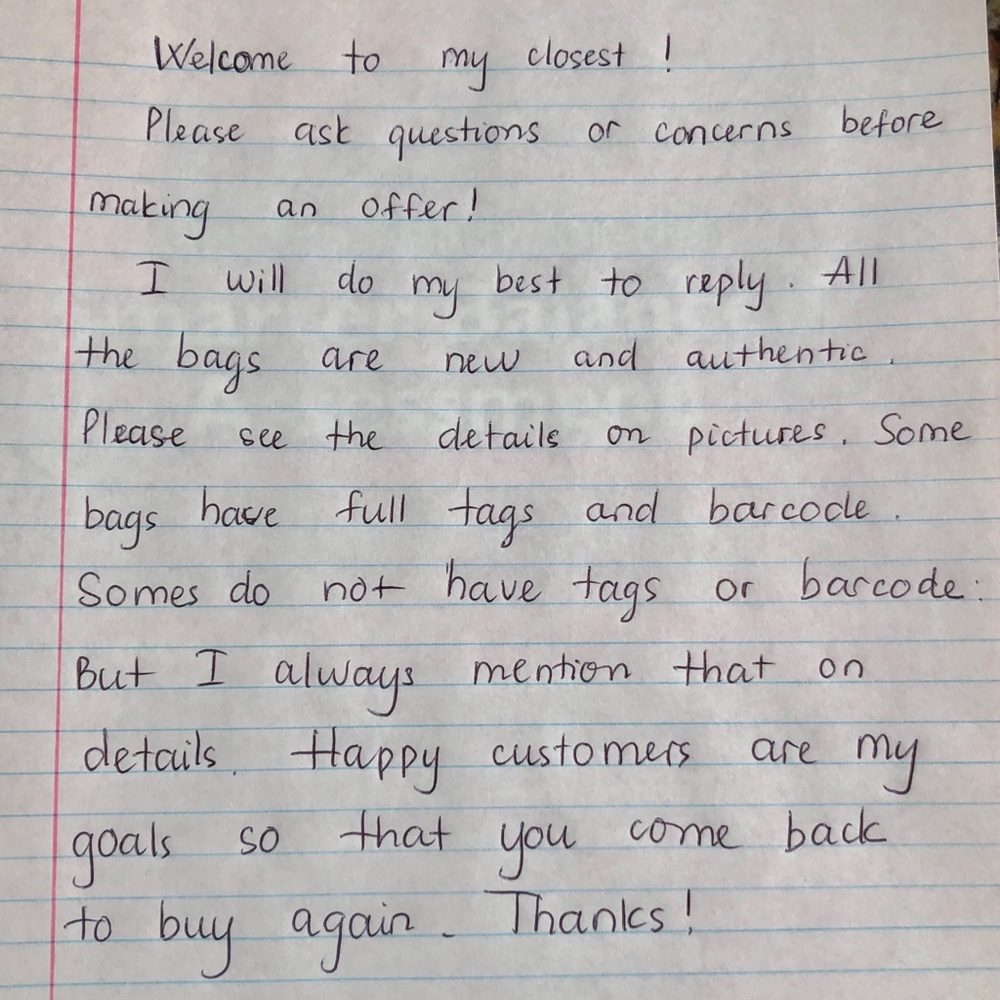 Welcome to my closest !
Please ask questions or concerns before
making an offer!
I will do my best to reply. All
the bags are new and authentic.
Please see the details on pictures. Some
bags have full tags and barcode.
Somes do not have tags or barcode.
But I always mention that on
details. Happy customers are my
goals so that you come back
to buy again. Thanks!